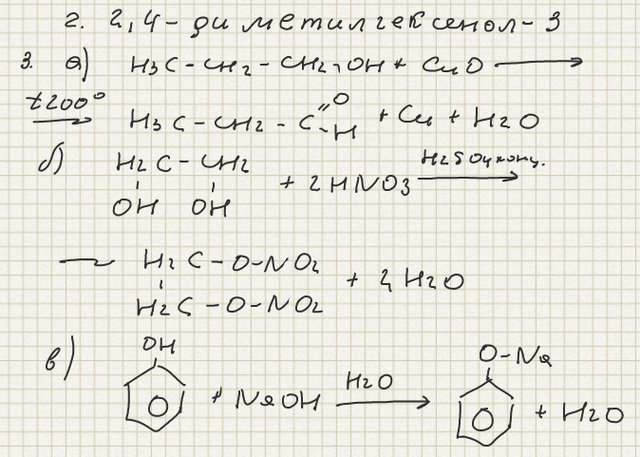 г. 2,4-диметилгексенол-3
3. а) H3C-CH2-CH2-OH + CuO ⟶
t200° ⟶ H3C-CH2-C=O-H + Cu + H2O
б) H2C-CH2
OH OH + 2HNO3 H2SO4конц. ⟶
H2C-O-NO2
H2C-O-NO2 + 2H2O
в) OH O-Na
+ NaOH H2O ⟶ + H2O